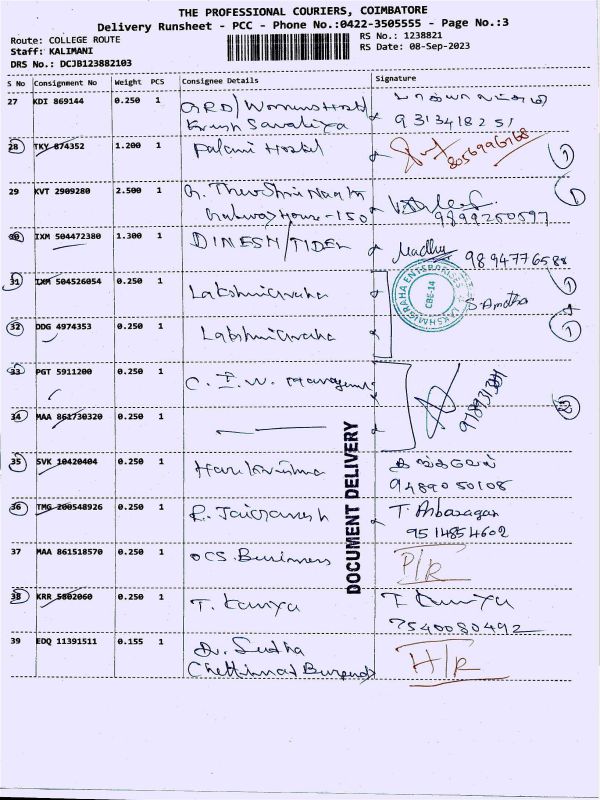 THE PROFESSIONAL COURIERS, COIMBATORE
Delivery Runsheet - PCC - Phone No.:0422-3505555 - Page No.:3
Route: COLLEGE ROUTE
RS No.: 1238821
Staff: KALIMANI
RS Date: 08-Sep-2023
DRS No.: DCJB123882103
S No Consignment No Weight PCS Consignee Details Signature
27 KDI 869144 0.250 1 GRD/Womens Hostel
9313418251
28 TKY 874352 1.200 1 Palani Hostel 8056996768 1
29 KVT 2909280 2.500 1
House-150 9899250597 1
30 IXM 504472380 1.300 1 DINESH/TIDEL Madhu 9894776588
31 IXM 504526054 0.250 1 Lakshmigraha 1
LAKSHMIGRAHA ENTERPRISES
CBE-14
32 DDG 4974353 0.250 1 Lakshmigraha 1
33 PGT 5911200 0.250 1 C.I.W.
34 MAA 861730320 0.250 1 2
DOCUMENT DELIVERY
35 SVK 10420404 0.250 1 Harikrishna தங்கவேல்
9489050108
36 TMG 200548926 0.250 1 R. Jaiganesh T. Anbasagan
9514854602
37 MAA 861518570 0.250 1 OCS. Business P/R
38 KRR 5802060 0.250 1 T. Kaniya T. Kaniya
7540080492
39 EDQ 11391511 0.155 1 Dr. Sudha H/R
Chettinad